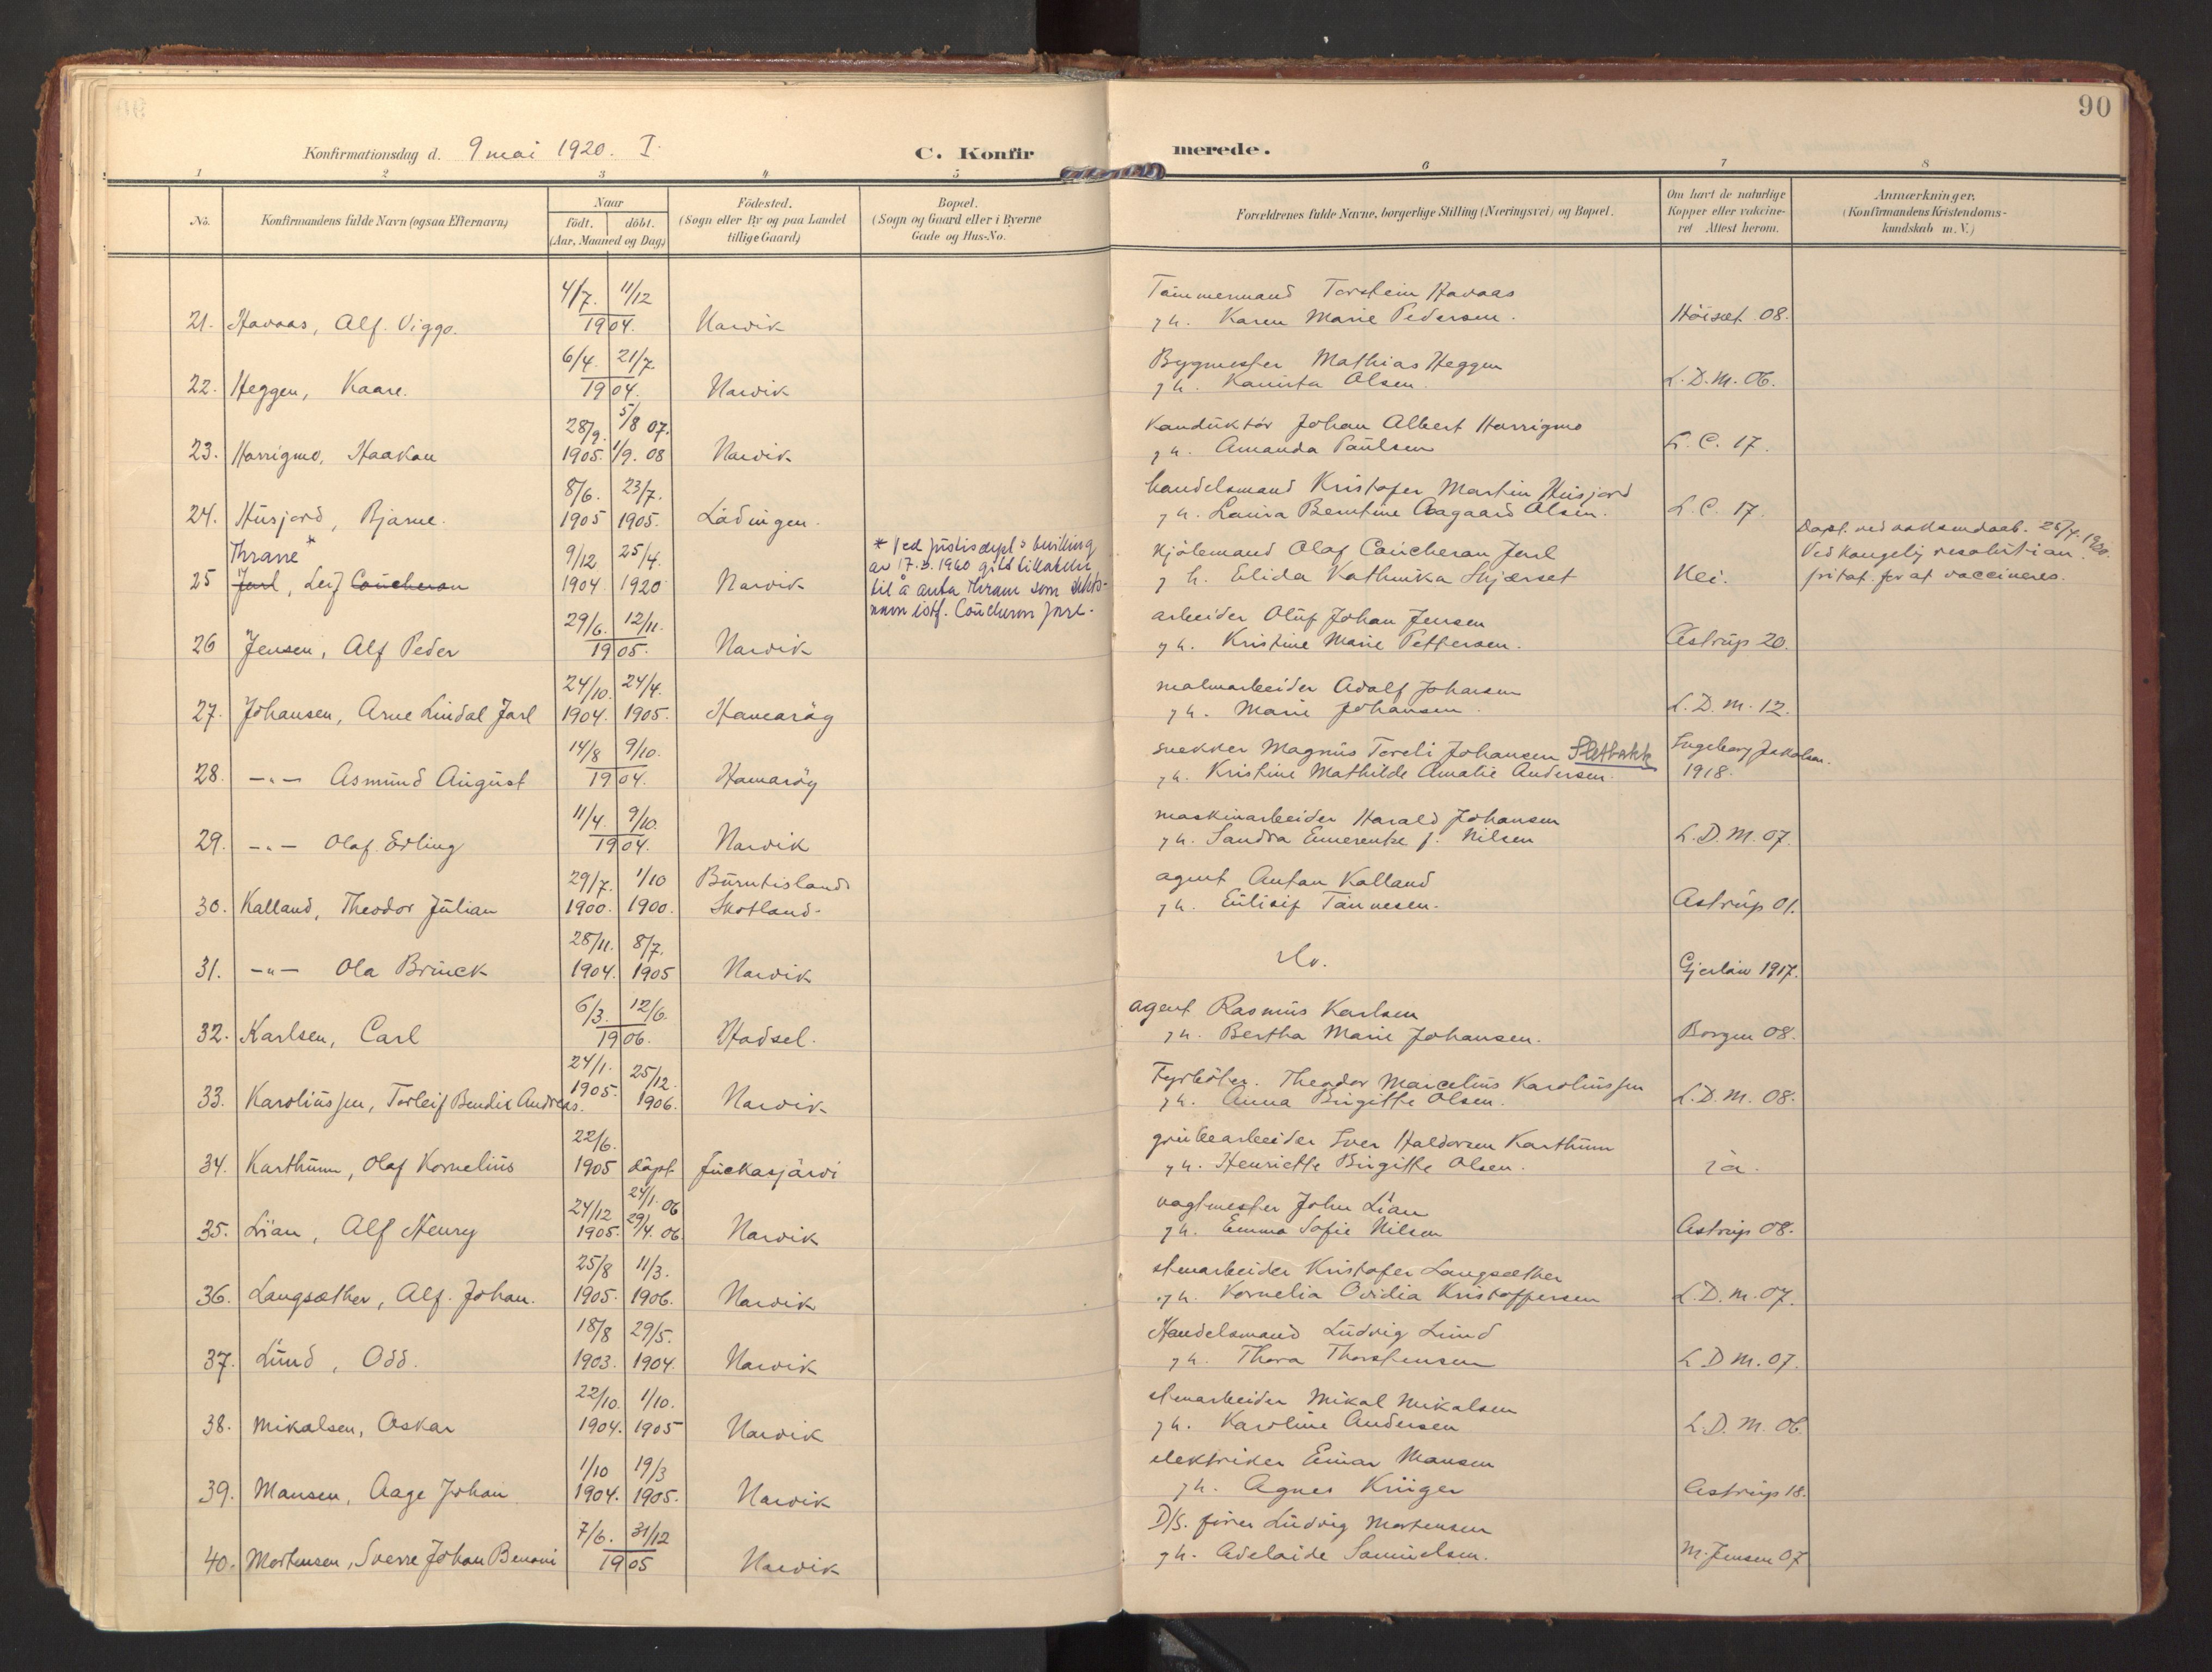 90
Konfirmationsdag d. 9 mai 1920. I.
C. Konfirmerede.
1 2 3 4 5 6 7 8
No.
Konfirmandens fulde Navn (ogsaa Efternavn)
Naar
født. döbt.
(Aar, Maaned og Dag)
Födested.
(Sogn eller By og paa Landet
tillige Gaard)
Bopæl.
(Sogn og Gaard eller i Byerne
Gade og Hus-No.
Forældrenes fulde Navne, borgerlige Stilling (Næringsvei) og Bopæl.
Om havt de naturlige
Kopper eller vakcine-
ret Attest herom.
Anmærkninger.
(Konfirmandens Kristendoms-
kundskab m. V.)
4/7. 11/12 Tömmermand Torstein Havaas
21. Havaas, Alf Viggo. 1904. Narvik g h. Karen Marie Pedersen. Höisæt 08.
6/4. 21/7. Bygmester Mathias Heggen
22. Heggen, Kaare. 1904. Narvik g h. Olsen. L.D.M. 06.
28/9. 5/8 07. Konduktör Johan Albert Harrigmo
23. Harrigmo, Haakon 1905. 1/9. 08 Narvik g h. Amanda Paulsen L.C. 17.
8/6. 23/7. handelsmand Kristofer Martin Husjord
24. Husjord, Bjarne. 1905 1905. Lödingen. g h. Laura Berntine Aagaard Olsen. L.C. 17.
Thrane * 9/12 25/4. Kjölemand Olaf Coucheron Jarl
25 Jarl, Leif Coucheron 1904 1920 Narvik g h. Elida Kathinka Skjærset Nei.
* Ved justisdept's bevilling
av 17.3.1960 gitt tillatelse
til å anta Thrane som slekts-
navn istf. Coucheron Jarl.
Döpt ved voksendaab. 25/4. 1920.
Ved kongelig resolution
fritat for at vaccineres.
29/6. 12/11. arbeider Oluf Johan Jensen
26 Jensen, Alf Peder 1905. Narvik g h. Kristine Marie Pettersen. Astrup 20.
24/10. 24/4. malmarbeider Adolf Johansen
27. Johansen, Arne Lindal Jarl 1904. 1905. Hamaröy g h. Marie Johansen. L.D.M. 12.
14/8 9/10. snekker Magnus Tereli Johansen Sletbakk Ingeborg Jakobsen.
28. -"- Asmund August 1904. Hamaröy g h. Kristine Mathilde Amalie Andersen. 1918.
11/4. 9/10. maskinarbeider Harald Johansen
29. -"- Olaf Erling 1904. Narvik g h. Sandra Emerentze f. Nilsen L.D.M. 07.
29/7. 1/10 Burntisland agent Anton Kalland
30. Kalland, Theodor Julian 1900. 1900. Skotland. g h. Eilisif Tönnesen. Astrup 01.
28/11. 8/7. do.
31. -"- Ola Brinck 1904. 1905 Narvik Gjerlöw 1917.
6/3. 12/6. agent Rasmus Karlsen
32. Karlsen, Carl 1906. Hadsel. g h. Bertha Marie Johansen. Borgen 08.
24/1. 25/12. Fyrböter. Theodor Marcelius Karoliussen
33. Karoliussen, Torleif Bendix Andreas. 1905. 1906. Narvik g h. Anna Birgitte Olsen. L.D.M. 08.
22/6. grubearbeider Iver Haldorsen Karthum
34. Karthum, Olaf Kornelius 1905 döpt Juckasjärvi g h. Henriette Birgitte Olsen. ja.
24/12 24/1. 06 vagtmester John Lian
35. Lian, Alf Henry 1905. 29/4. 06. Narvik g h. Emma Sofie Nilsen Astrup 08.
25/8 11/3. stenarbeider Kristofer Langsæther
36. Langsæther, Alf Johan. 1905. 1906. Narvik g h. Kornelia Ovidia Kristoffersen L.D.M. 07.
18/8 29/5. Handelsmand Ludvig Lund
37. Lund, Odd. 1903. 1904. Narvik g h. Thora Thorstensen L.D.M. 07.
22/10. 1/10. stenarbeider Mikal Mikalsen
38. Mikalsen, Oskar 1904. 1905 Narvik g h. Karoline Andersen L.D.M. 06.
1/10 19/3 elektriker Einar Monsen
39. Monsen, Aage Johan 1904. 1905. Narvik g h. Agnes Krüger Astrup 18.
7/6. 31/12 D/S. förer Ludvig Mortensen
40. Mortensen, Sverre Johan Benoni 1905 Narvik g h. Adelaide Samuelsen. M. Jensen 07